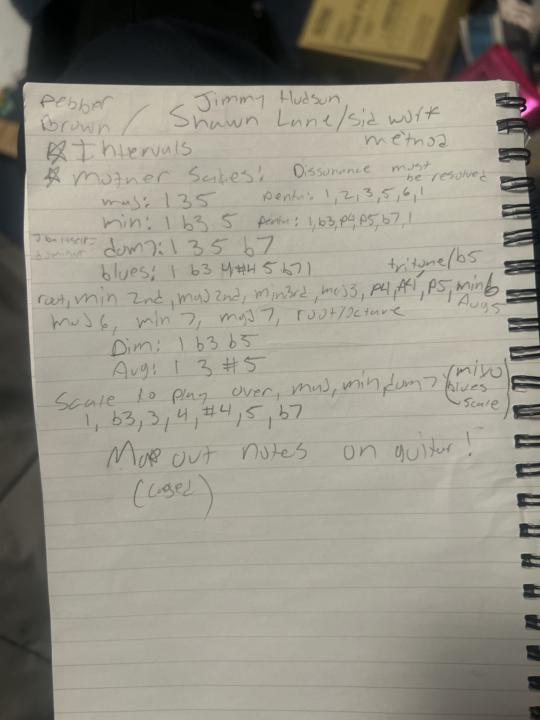 Pebber Jimmy Hudson
Brown / Shawn Lane/sid work
method
☆ Intervals
☆ Mother Scales: Dissonance must
be resolved
maj: 1 3 5 penta: 1, 2, 3, 5, 6, 1
min: 1 b3 5 penta: 1, b3, P4, P5, b7, 1
dom7: 1 3 5 b7
blues: 1 b3 4 #4 5 b7 1 tritone/b5
root, min 2nd, maj 2nd, min3rd, maj3, P4, A4, P5, min6
Aug5
maj 6, min 7, maj 7, root/octave
Dim: 1 b3 b5
Aug: 1 3 #5
Scale to play over, maj, min, dom7 (mixo
blues
scale)
1, b3, 3, 4, #4, 5, b7
Map out notes on guitar!
(caged)